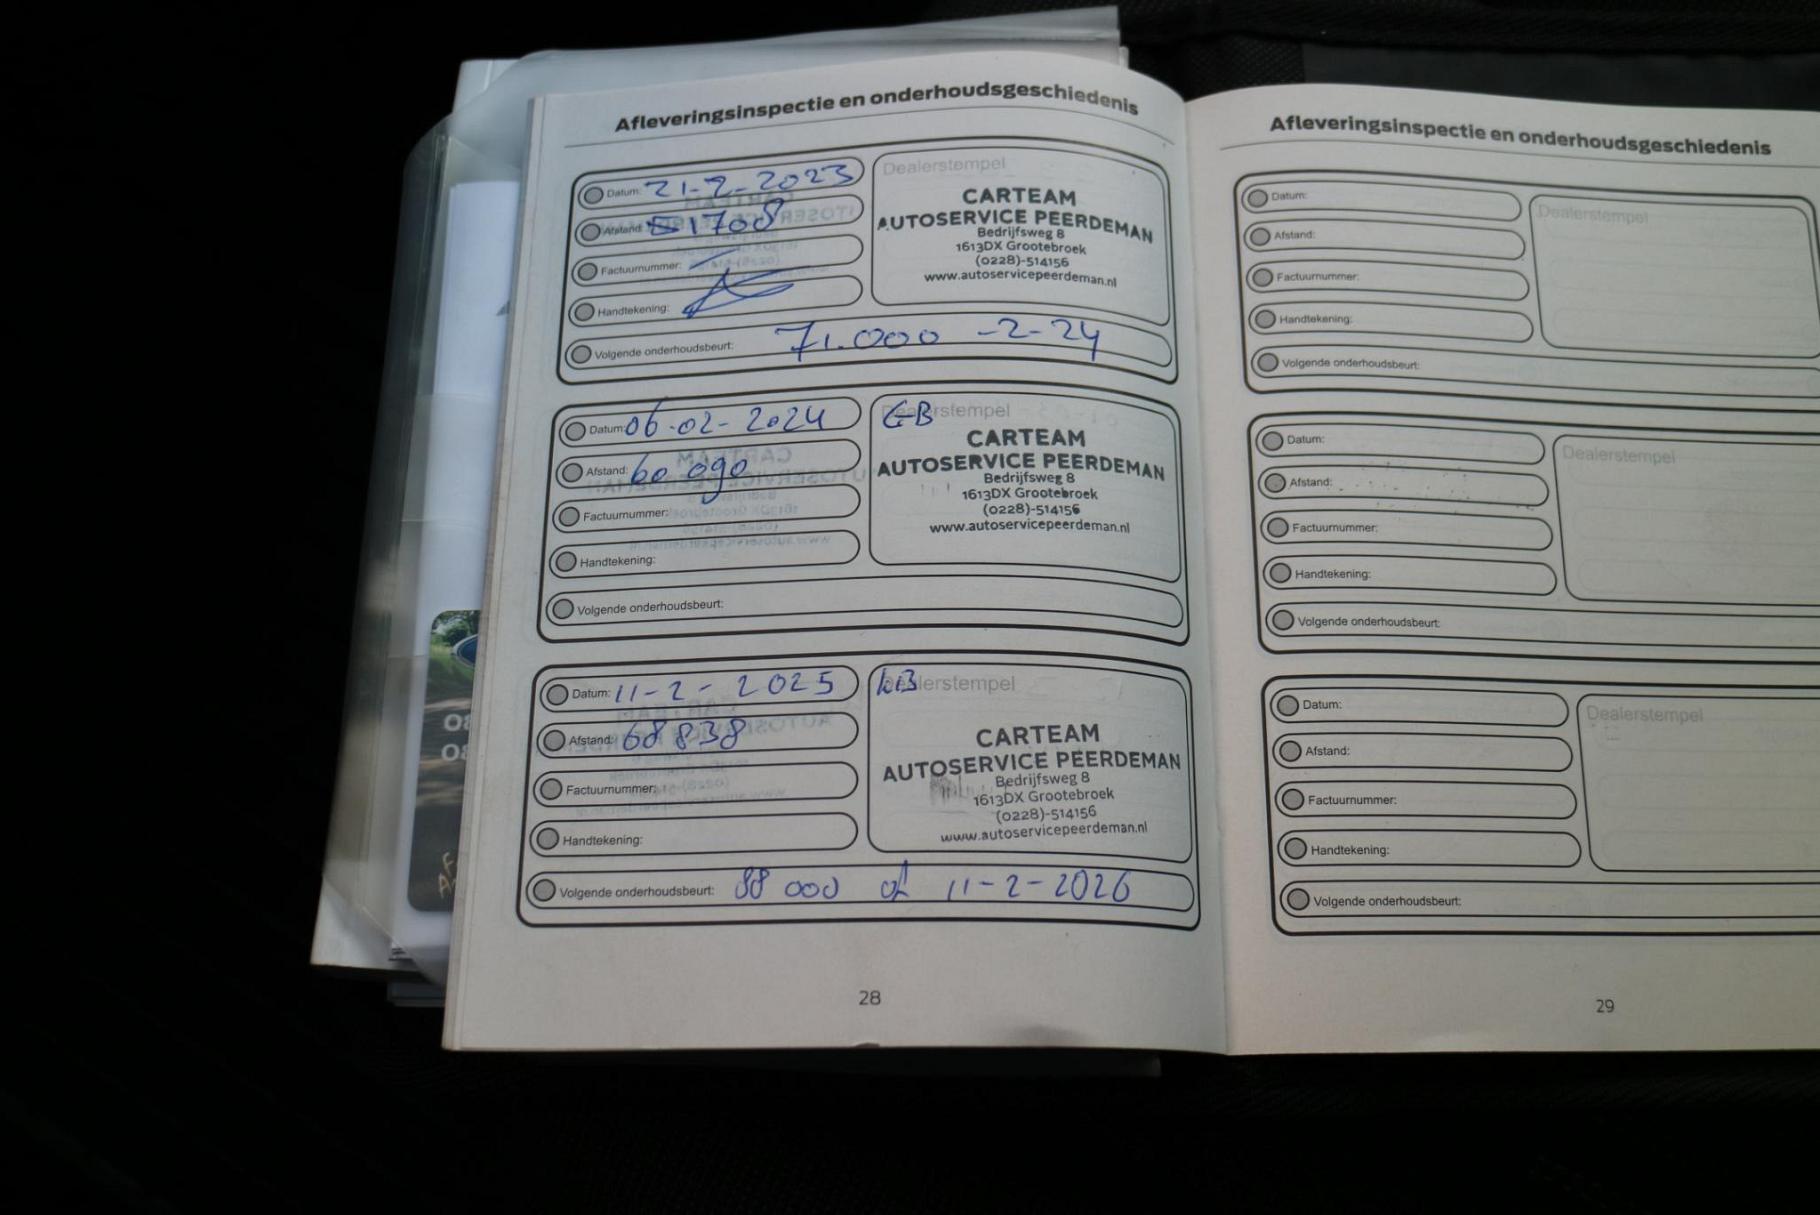 Afleveringsinspectie en onderhoudsgeschiedenis
Datum: 21-2-2023
Afstand: 51708
Factuurnummer:
Handtekening:
Volgende onderhoudsbeurt: 71.000 -2-24
Dealerstempel
CARTEAM
AUTOSERVICE PEERDEMAN
Bedrijfsweg 8
1613DX Grootebroek
(0228)-514156
www.autoservicepeerdeman.nl
Datum: 06-02-2024
Afstand: 60 090
Factuurnummer:
Handtekening:
Volgende onderhoudsbeurt:
Dealerstempel
CARTEAM
AUTOSERVICE PEERDEMAN
Bedrijfsweg 8
1613DX Grootebroek
(0228)-514156
www.autoservicepeerdeman.nl
Datum: 11-2-2025
Afstand: 68838
Factuurnummer:
Handtekening:
Volgende onderhoudsbeurt: 88 000 of 11-2-2026
Dealerstempel
CARTEAM
AUTOSERVICE PEERDEMAN
Bedrijfsweg 8
1613DX Grootebroek
(0228)-514156
www.autoservicepeerdeman.nl
28
Afleveringsinspectie en onderhoudsgeschiedenis
Datum:
Afstand:
Factuurnummer:
Handtekening:
Volgende onderhoudsbeurt:
Dealerstempel
Datum:
Afstand:
Factuurnummer:
Handtekening:
Volgende onderhoudsbeurt:
Dealerstempel
Datum:
Afstand:
Factuurnummer:
Handtekening:
Volgende onderhoudsbeurt:
Dealerstempel
29